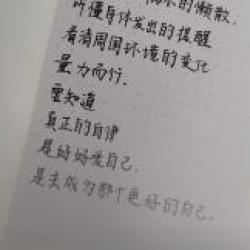 的懒散.
听懂身体发出的提醒
看清周围环境的变化
量力而行.
要知道
真正的自律
是好好爱自己.
是去成为那个更好的自己.